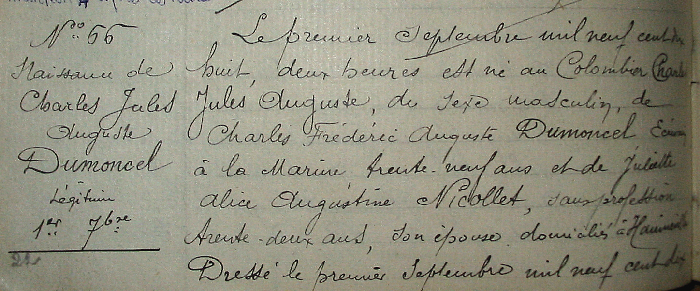 N° 66
Naissance de
Charles Jules
Auguste
Dumoncel
Légitime
1er 7bre
Le premier Septembre mil neuf cent dix
huit, deux heures est né au Colombier Charles
Jules Auguste, du sexe masculin, de
Charles Frédéric Auguste Dumoncel
à la Marine trente-neuf ans et de Juliette
alice Augustine Nicollet, sans profession
trente-deux ans, son épouse domiciliés à
Dressé le premier Septembre mil neuf cent dix